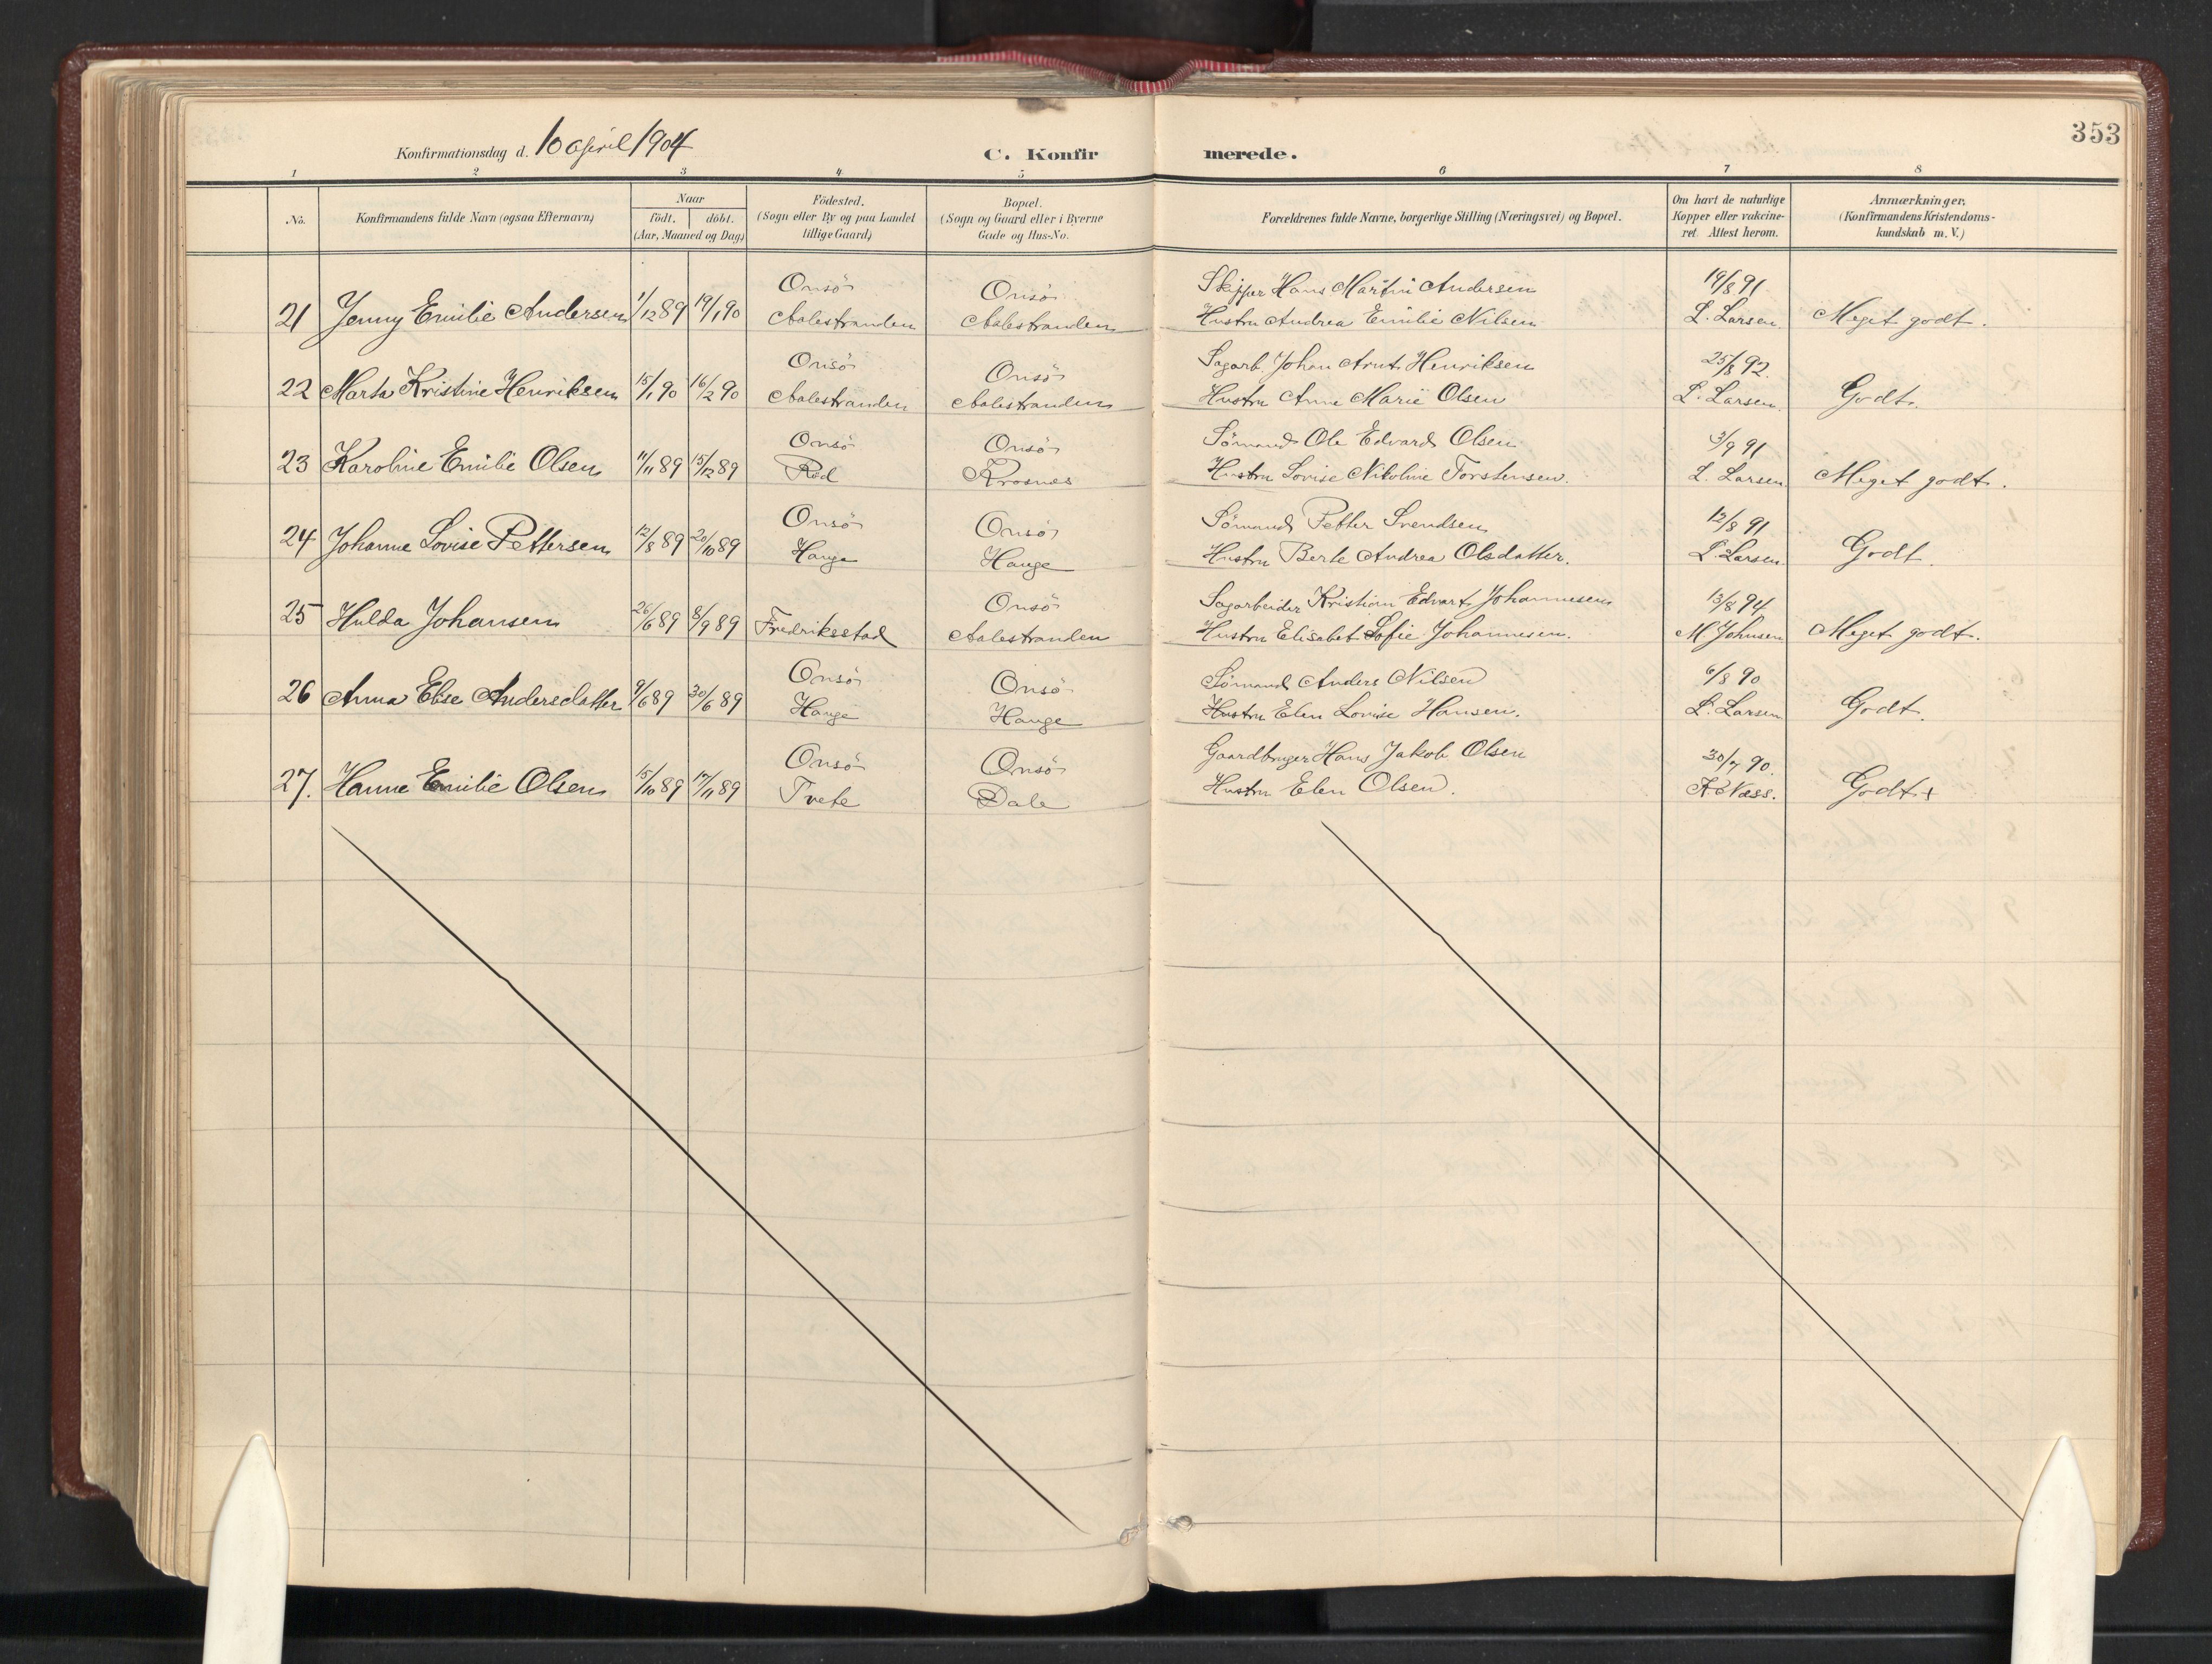 353
Konfirmationsdag d. 10 april 1904
C. Konfirmerede.
1 2 3 4 5 6 7 8
No.
Konfirmandens fulde Navn (ogsaa Efternavn)
Naar
födt. döbt.
(Aar, Maaned og Dag)
Födested.
(Sogn eller By og paa Landet
tillige Gaard)
Bopæl.
(Sogn og Gaard eller i Byerne
Gade og Hus-No.
Forældrenes fulde Navne, borgerlige Stilling (Næringsvei) og Bopæl.
Om havt de naturlige
Kopper eller vakcine-
ret. Attest herom.
Anmærkninger,
(Konfirmandens Kristendoms-
kundskab m. V.)
Onsö Onsö Skipper Hans Martin Andersen 19/8 91
21 Jenny Emilie Andersen 1/12 89 19/1 90 Aalestranden Aalestranden Hustru Andrea Emilie Nilsen L. Larsen. Meget godt.
Onsö Onsö Sagarb. Johan Arnt Henriksen 25/8 92.
22 Marta Kristine Henriksen 15/1 90 16/2 90 Aalestranden Aalestranden Hustru Anne Marie Olsen L. Larsen. Godt.
Onsö Onsö Sömand Ole Edvard Olsen 3/9 91
23 Karoline Emilie Olsen 11/11 89 15/12 89 Röd Krosnes Hustru Lovise Nikoline Torstensen. L. Larsen Meget godt.
Onsö Onsö Sömand Petter Svendsen 12/8 91
24 Johanne Lovise Pettersen 12/8 89 20/10 89 Hauge Hauge Hustru Berte Andrea Olsdatter. L. Larsen Godt.
Onsö Sagarbeider Kristian Edvart Johannesen 13/8 94
25 Hulda Johansen 26/6 89 8/9 89 Fredriksstad Aalestranden Hustru Elisabet Sofie Johannesen. M Johnsen Meget godt.
Onsö Onsö Sömand Anders Nilsen 6/8 90
26 Anna Elise Andersdatter 9/6 89 30/6 89 Hauge Hauge Hustru Elen Lovise Hansen. L. Larsen Godt.
Onsö Onsö Gaardbruger Hans Jakob Olsen 30/7 90.
27. Hanne Emilie Olsen 15/10 89 17/11 89 Tvete Dale Hustru Elen Olsen. Næss. Godt+